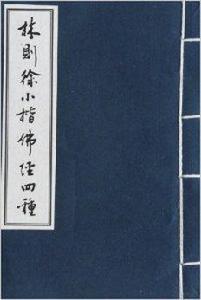 林則徐小楷佛經四種